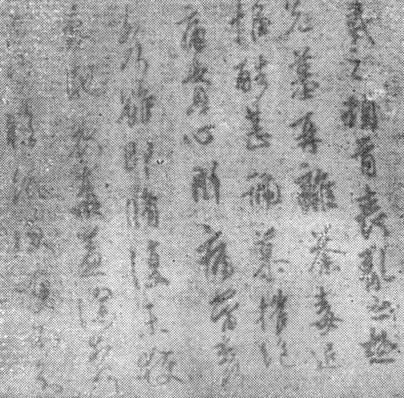 羲之頓首喪亂之極
先墓再離荼毒追
惟酷甚號慕摧絕
痛貫心肝痛當奈何
奈何雖即脩復未獲
奔馳哀毒益深奈何
臨紙感哽不知